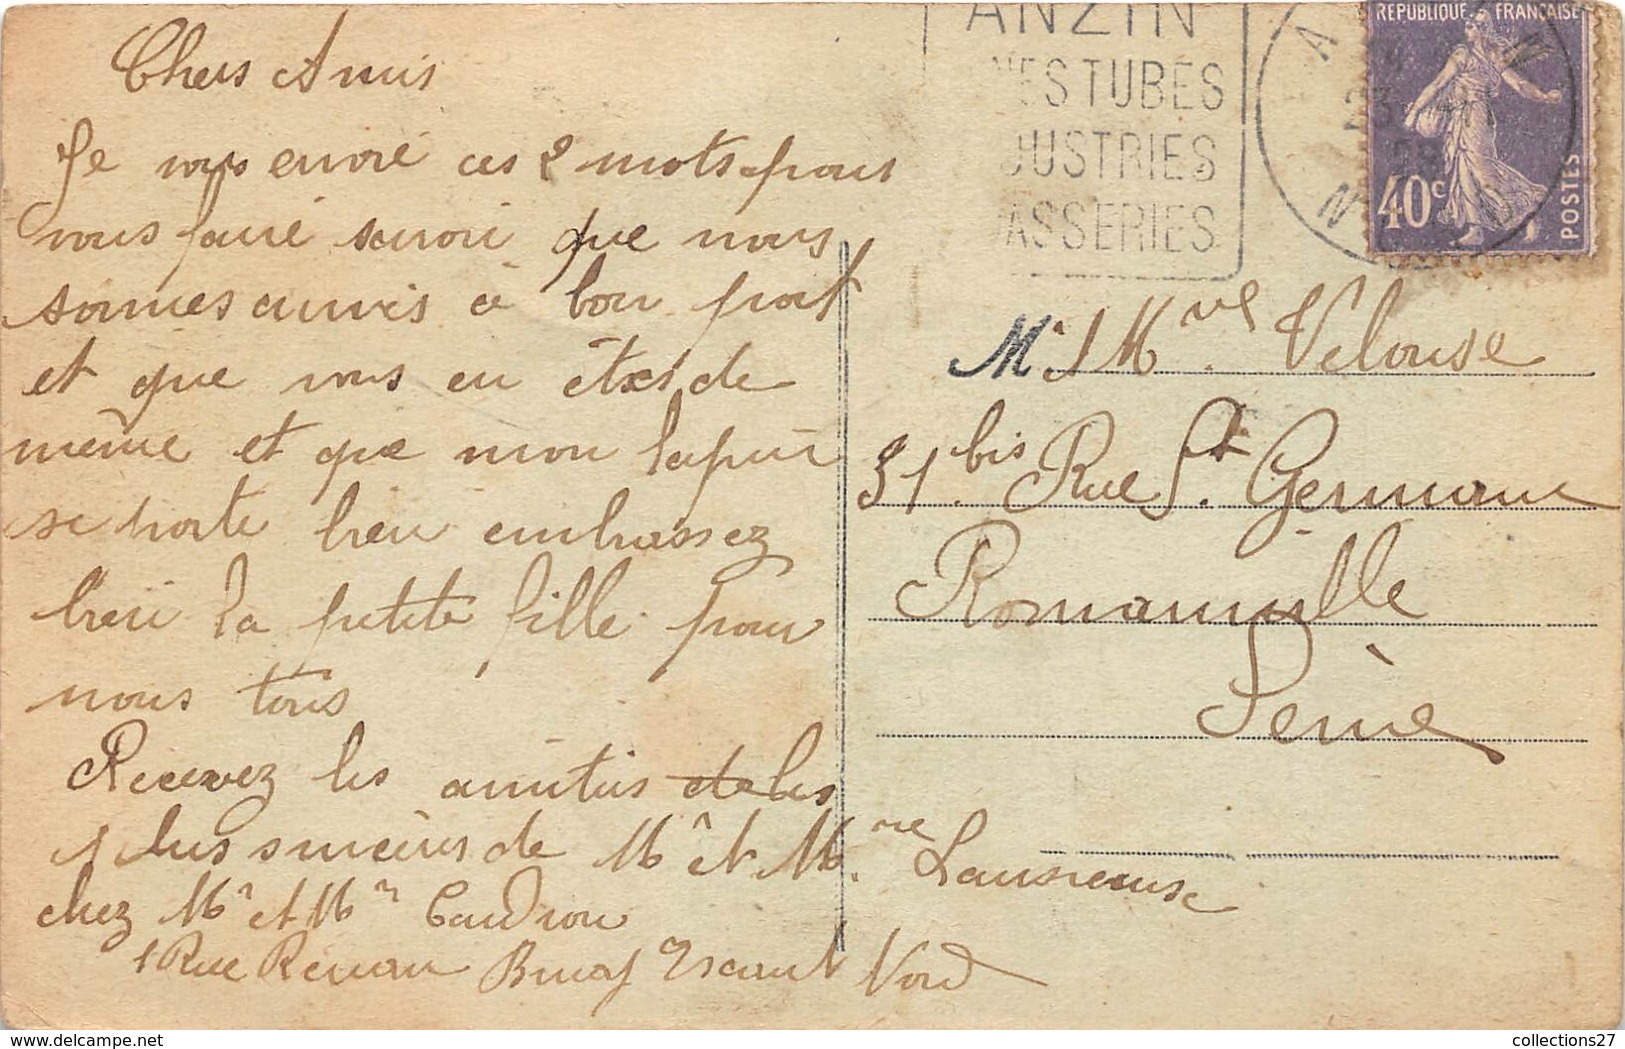 Chers Amis
Je vous envoie ces 2 mots pour
vous faire savoir que nous
somes arrivés à bon port
et que vous en êtes de
même et que mon lapin
se porte bien embrassez
bien la petite fille pour
nous tous
Recevez les amitiés les
plus sincères de Mr et Mme
chez Mr et Mm Caudron
1 Rue Renan Bruay Escaut Nord
ANZIN
NES TUBES
DUSTRIES
ASSERIES
A N
N
REPUBLIQUE FRANÇAISE
40c
POSTES
Mr M Velouse
31 bis Rue St. Germain
Romainville
Seine
www.delcampe.net
collections27